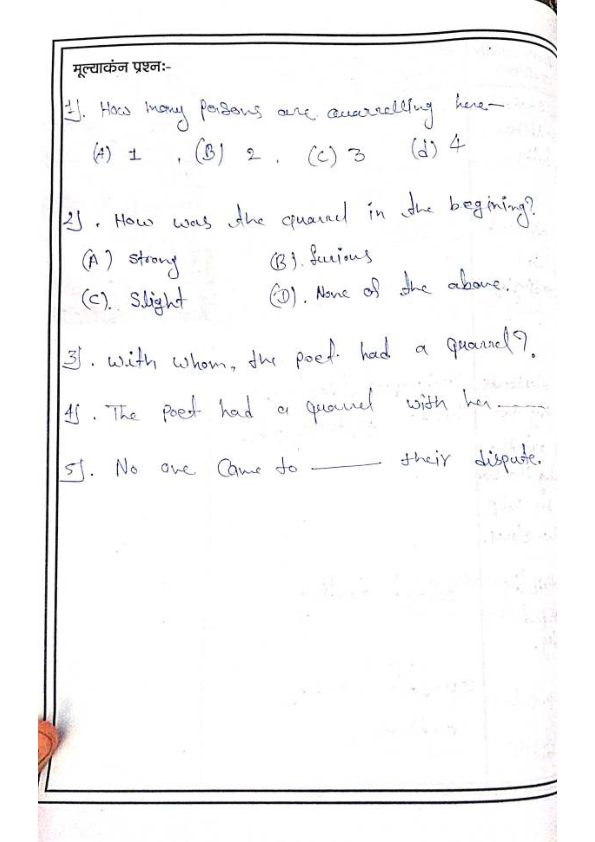 मूल्याकंन प्रश्न:-
1]. How many persons are quarrelling here-
(A) 1 , (B) 2 . (C) 3 (d) 4
2] . How was the quarrel in the begining?
(A) strong (B). furious
(C). Slight (D). None of the above.
3] . With whom, the poet had a quarrel?.
4] . The poet had a quarrel with her ____
5]. No one Came to ____ their dispute.